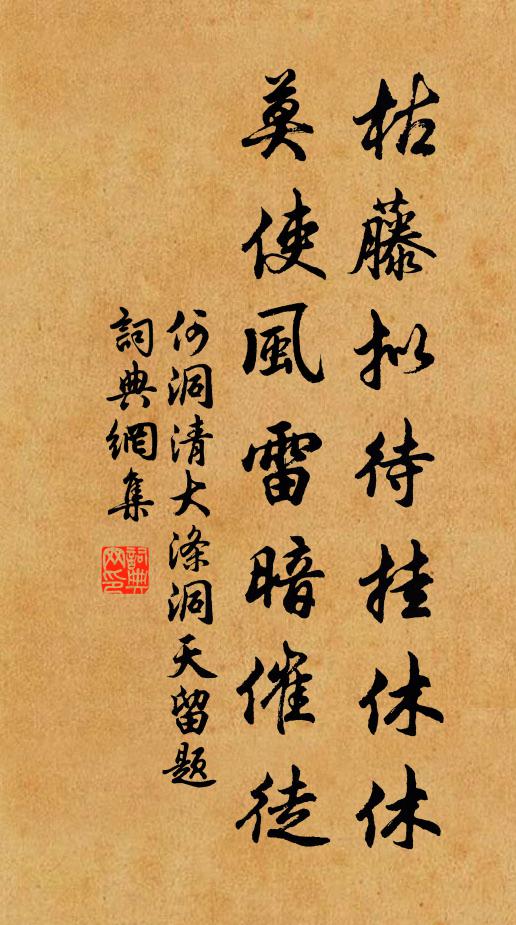 枯藤拟待挂休休
莫使風雷暗催徒
何洞清大涤洞天留题
詞典網集
詞典網印